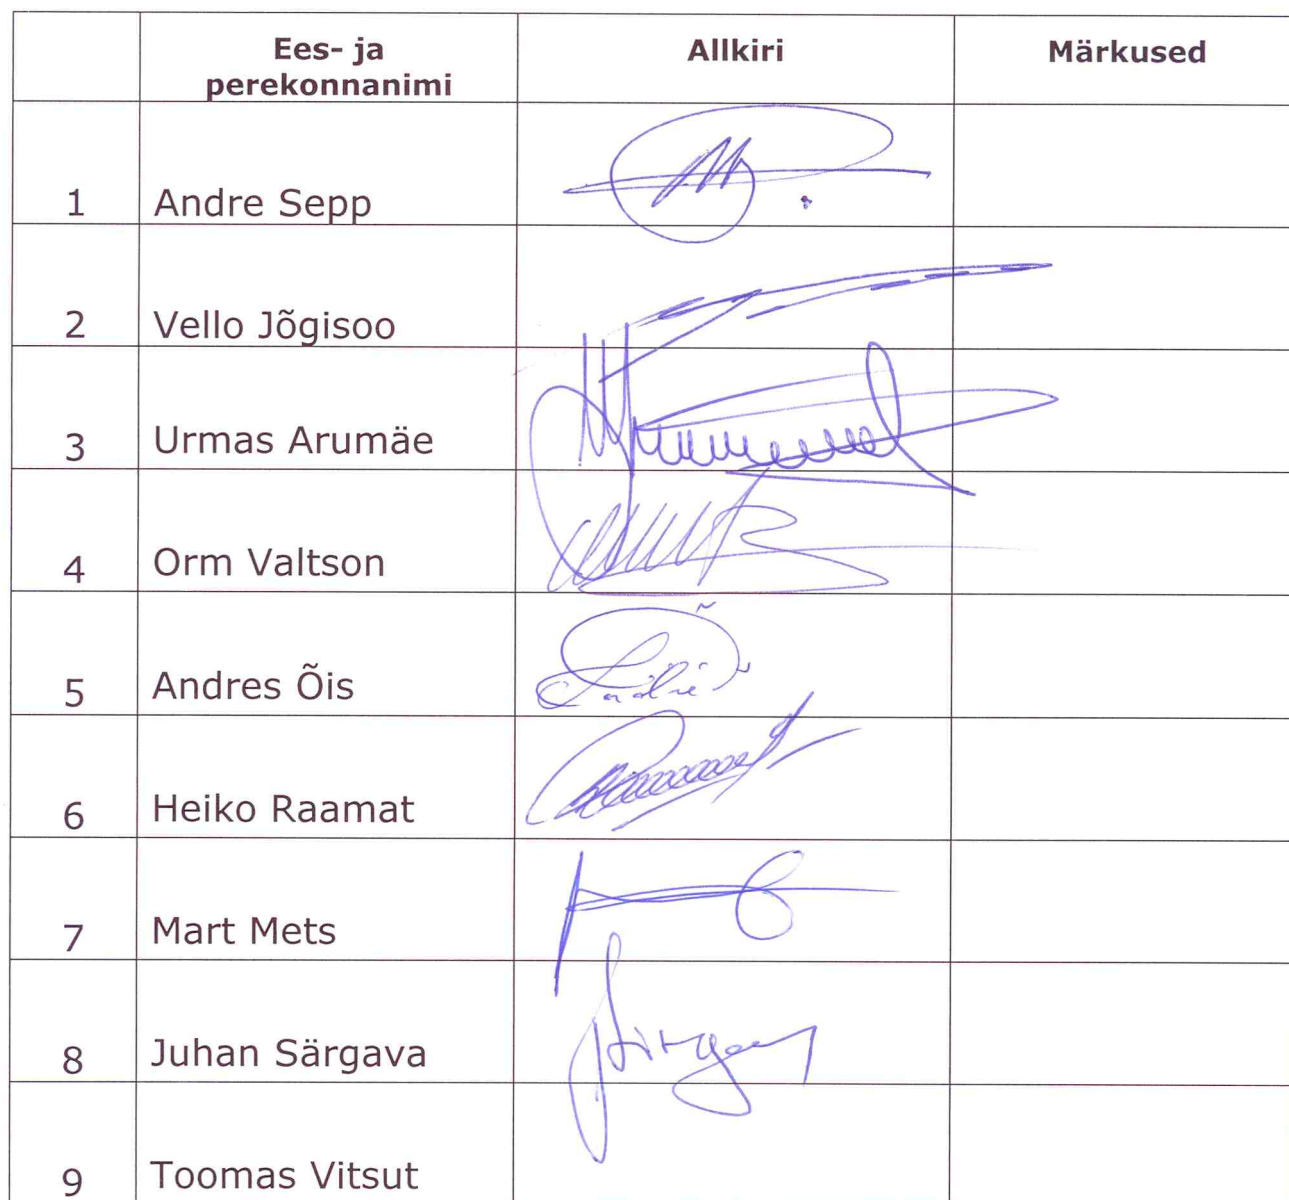 Ees- ja
perekonnanimi
Allkiri
Märkused
1 Andre Sepp
2 Vello Jõgisoo
3 Urmas Arumäe
4 Orm Valtson
5 Andres Õis
6 Heiko Raamat
7 Mart Mets
8 Juhan Särgava
9 Toomas Vitsut